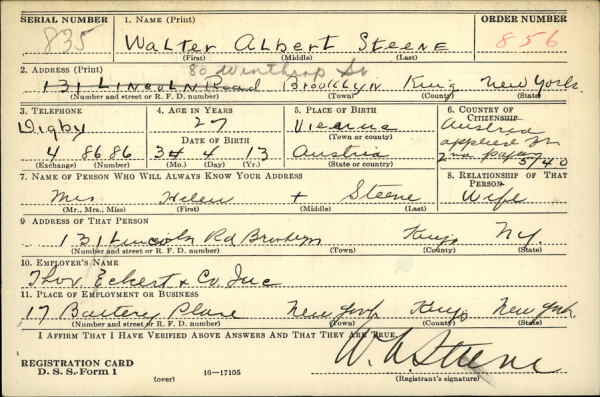 SERIAL NUMBER
835
1. NAME (Print)
WALTER ALBERT STEENE
(First) (Middle) (Last)
ORDER NUMBER
856
2. ADDRESS (Print)
80 Winthrop St
131 LINCOLN Road BROOKLYN King NEW YORK
(Number and street or R. F. D. number) (Town) (County) (State)
3. TELEPHONE
Digby
4 8686
(Exchange) (Number)
4. AGE IN YEARS
27
DATE OF BIRTH
4 13
(Mo.) (Day) (Yr.)
5. PLACE OF BIRTH
Vienna
(Town or county)
Austria
(State or country)
6. COUNTRY OF CITIZENSHIP
Austria
applied for
2nd papers
5/40
7. NAME OF PERSON WHO WILL ALWAYS KNOW YOUR ADDRESS
Mrs Helen + Steene
(Mr., Mrs., Miss) (First) (Middle) (Last)
8. RELATIONSHIP OF THAT PERSON
Wife
9 ADDRESS OF THAT PERSON
131 Lincoln Rd Brooklyn Kings NY.
(Number and street or R. F. D. number) (Town) (County) (State)
10. EMPLOYER'S NAME
Thor. Eckert & Co. Inc
11. PLACE OF EMPLOYMENT OR BUSINESS
17 Battery Place New York Kings New York
(Number and street or R. F. D. number) (Town) (County) (State)
I AFFIRM THAT I HAVE VERIFIED ABOVE ANSWERS AND THAT THEY ARE TRUE.
REGISTRATION CARD
D. S. S. Form 1
(over)
16—17105
W. A. Steene
(Registrant's signature)